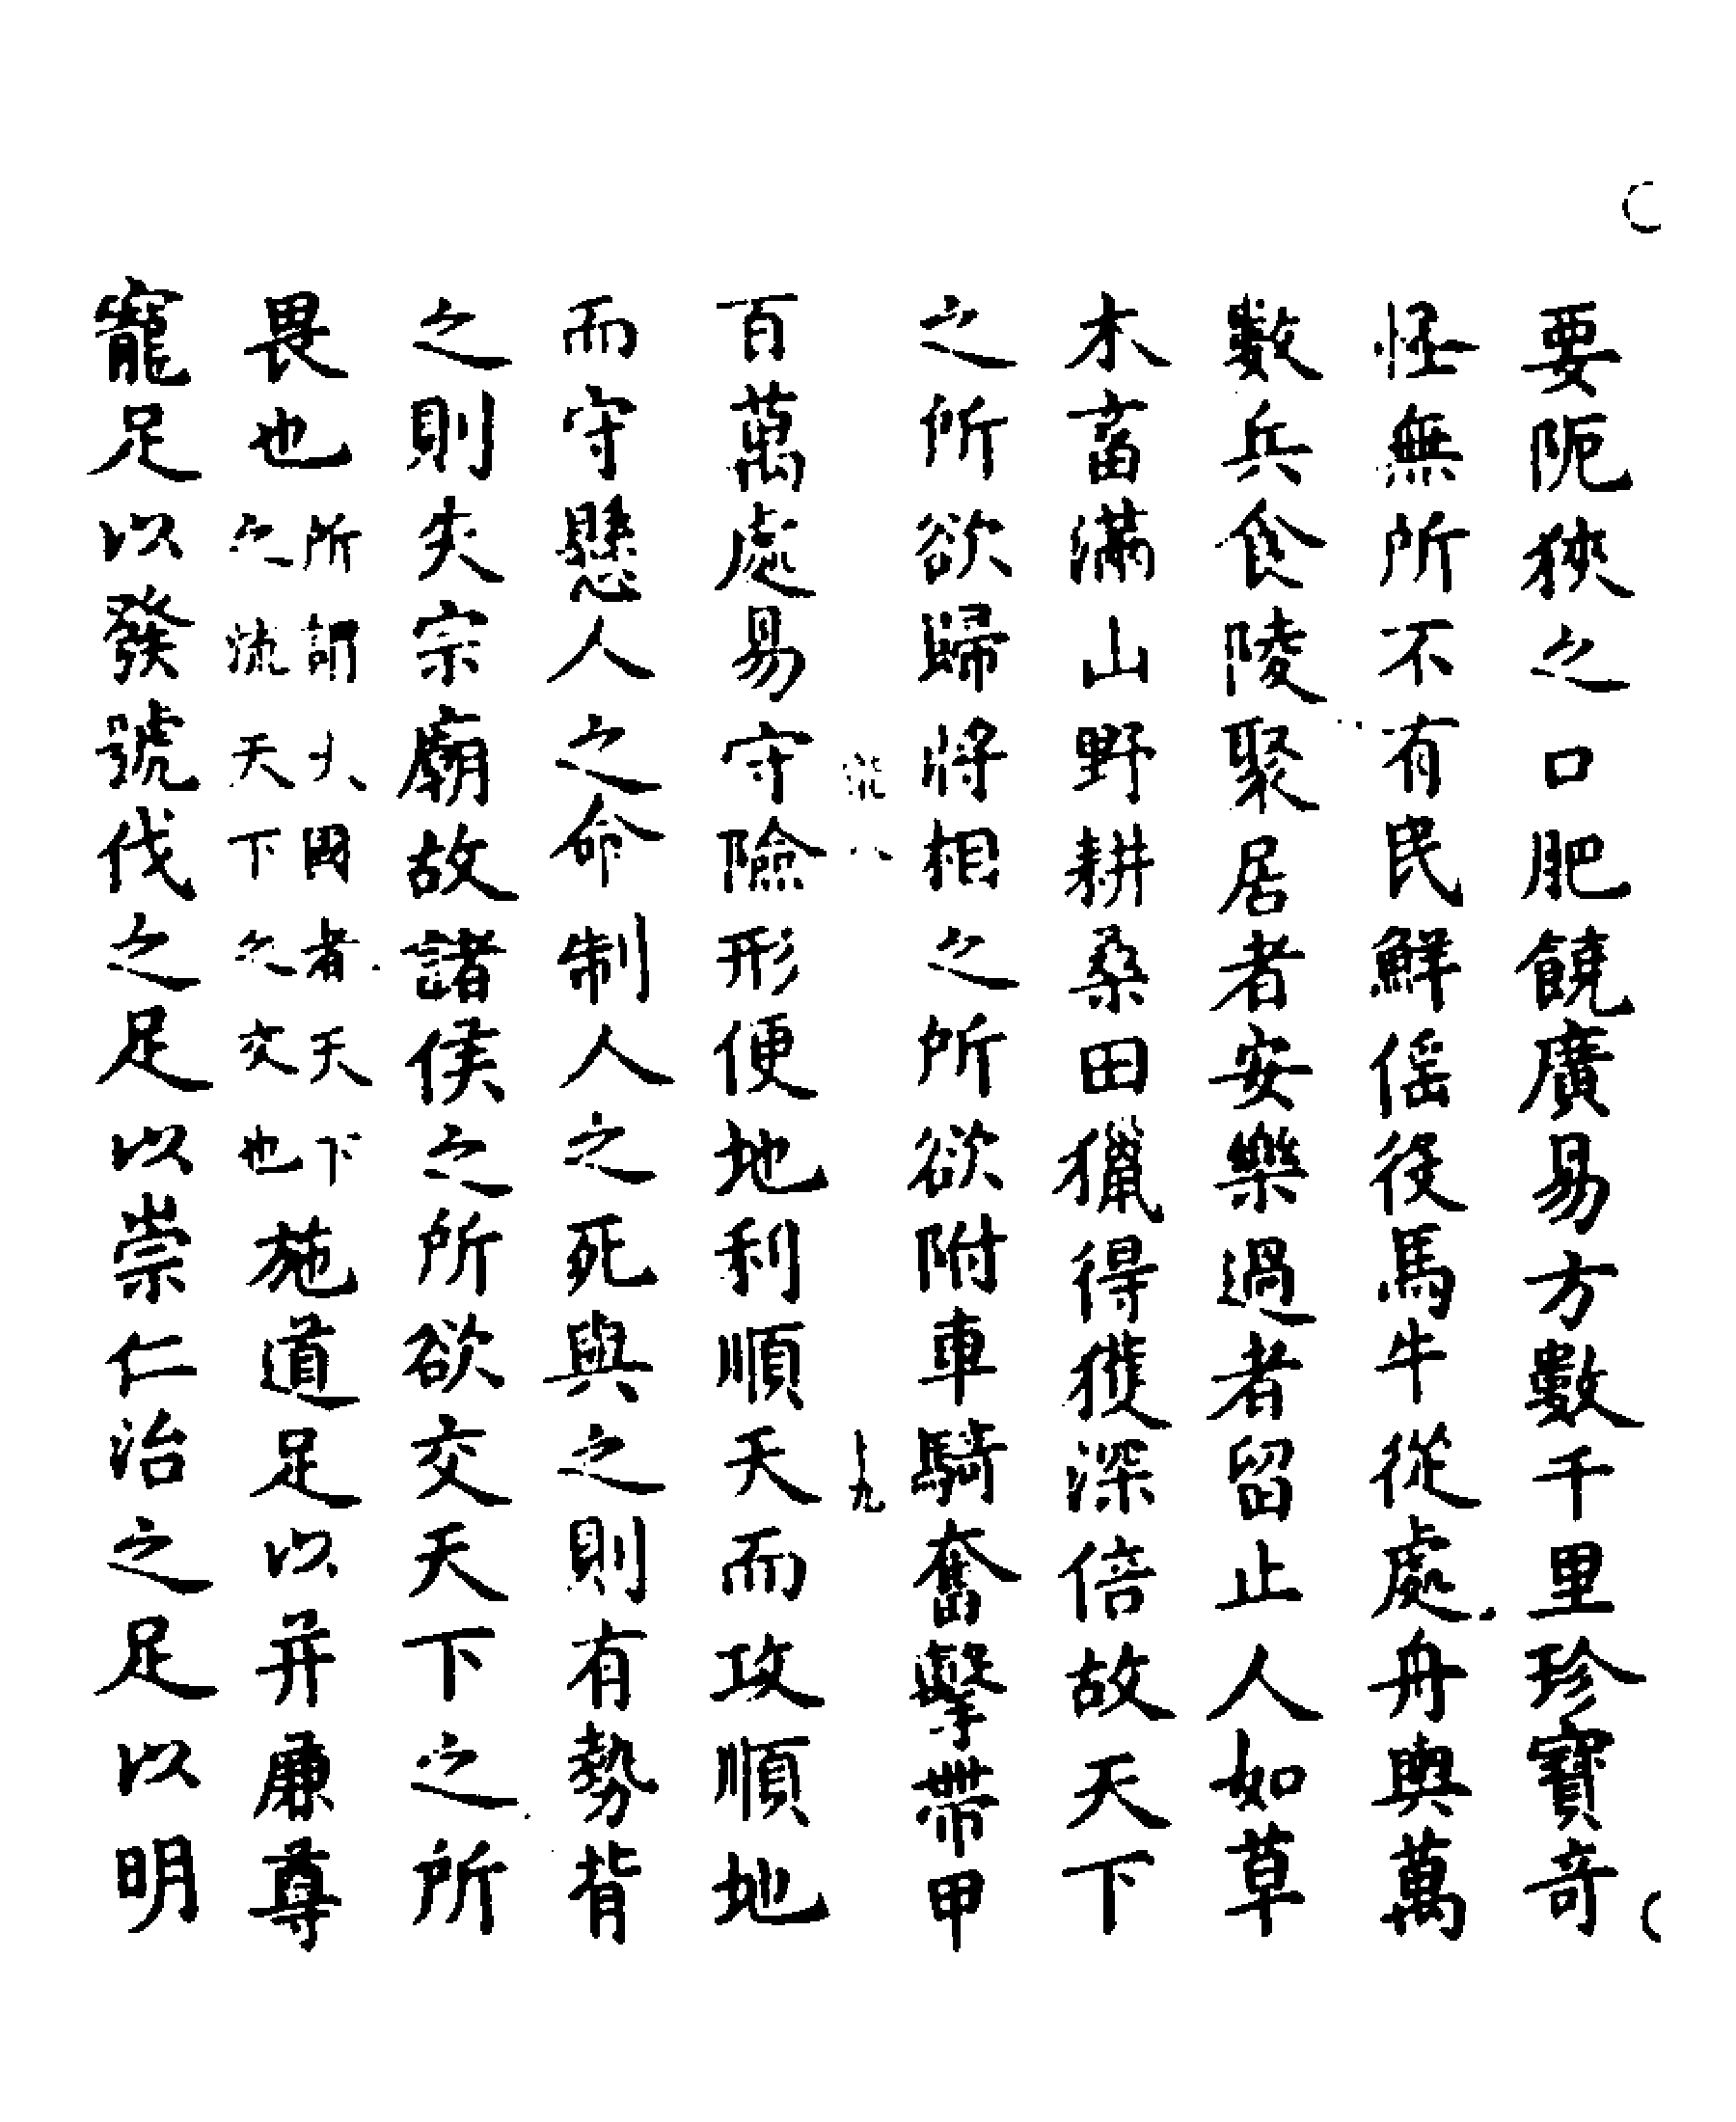 要阨狹之口肥饒廣易方數千里珍寶奇
怪無所不有民鮮傜役馬牛從處舟輿萬
數兵食陵聚居者安樂過者留止人如草
木畜滿山野耕桑田獵得獲深倍故天下
之所欲歸將相之所欲附車騎奮擊帶甲
十九
百萬處易守險形便地利順天而攻順地
而守懸人之命制人之死與之則有勢背
之則失宗廟故諸侯之所欲交天下之所
畏也
所謂大國者天下
之流天下之交也
施道足以并兼尊
寵足以發號伐之足以崇仁治之足以明